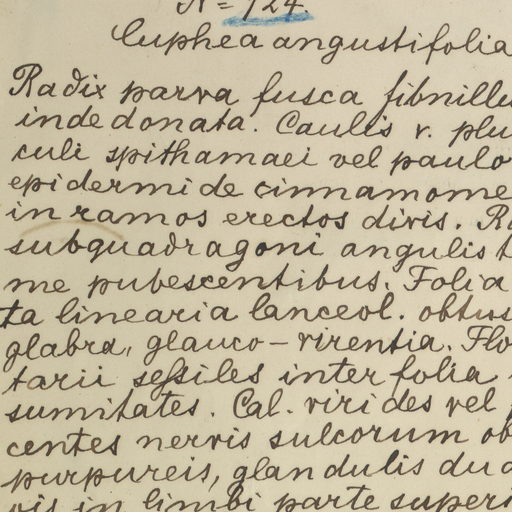 N = 724.
Cuphea angustifolia
Radix parva fusca fibrillu
inde donata. Caulis v. plu
culi spithamaei vel paulo
epidermide cinnamome
in ramos erectos divis. Ra
subquadragoni angulis t
me pubescentibus. Folia
ta linearia lanceol. obtus
glabra, glauco-virentia. Flo
tarii sessiles inter folia
sumitates. Cal. virides vel
centes nervis sulcorum ob
purpureis, glandulis du
vis in limbi parte superi